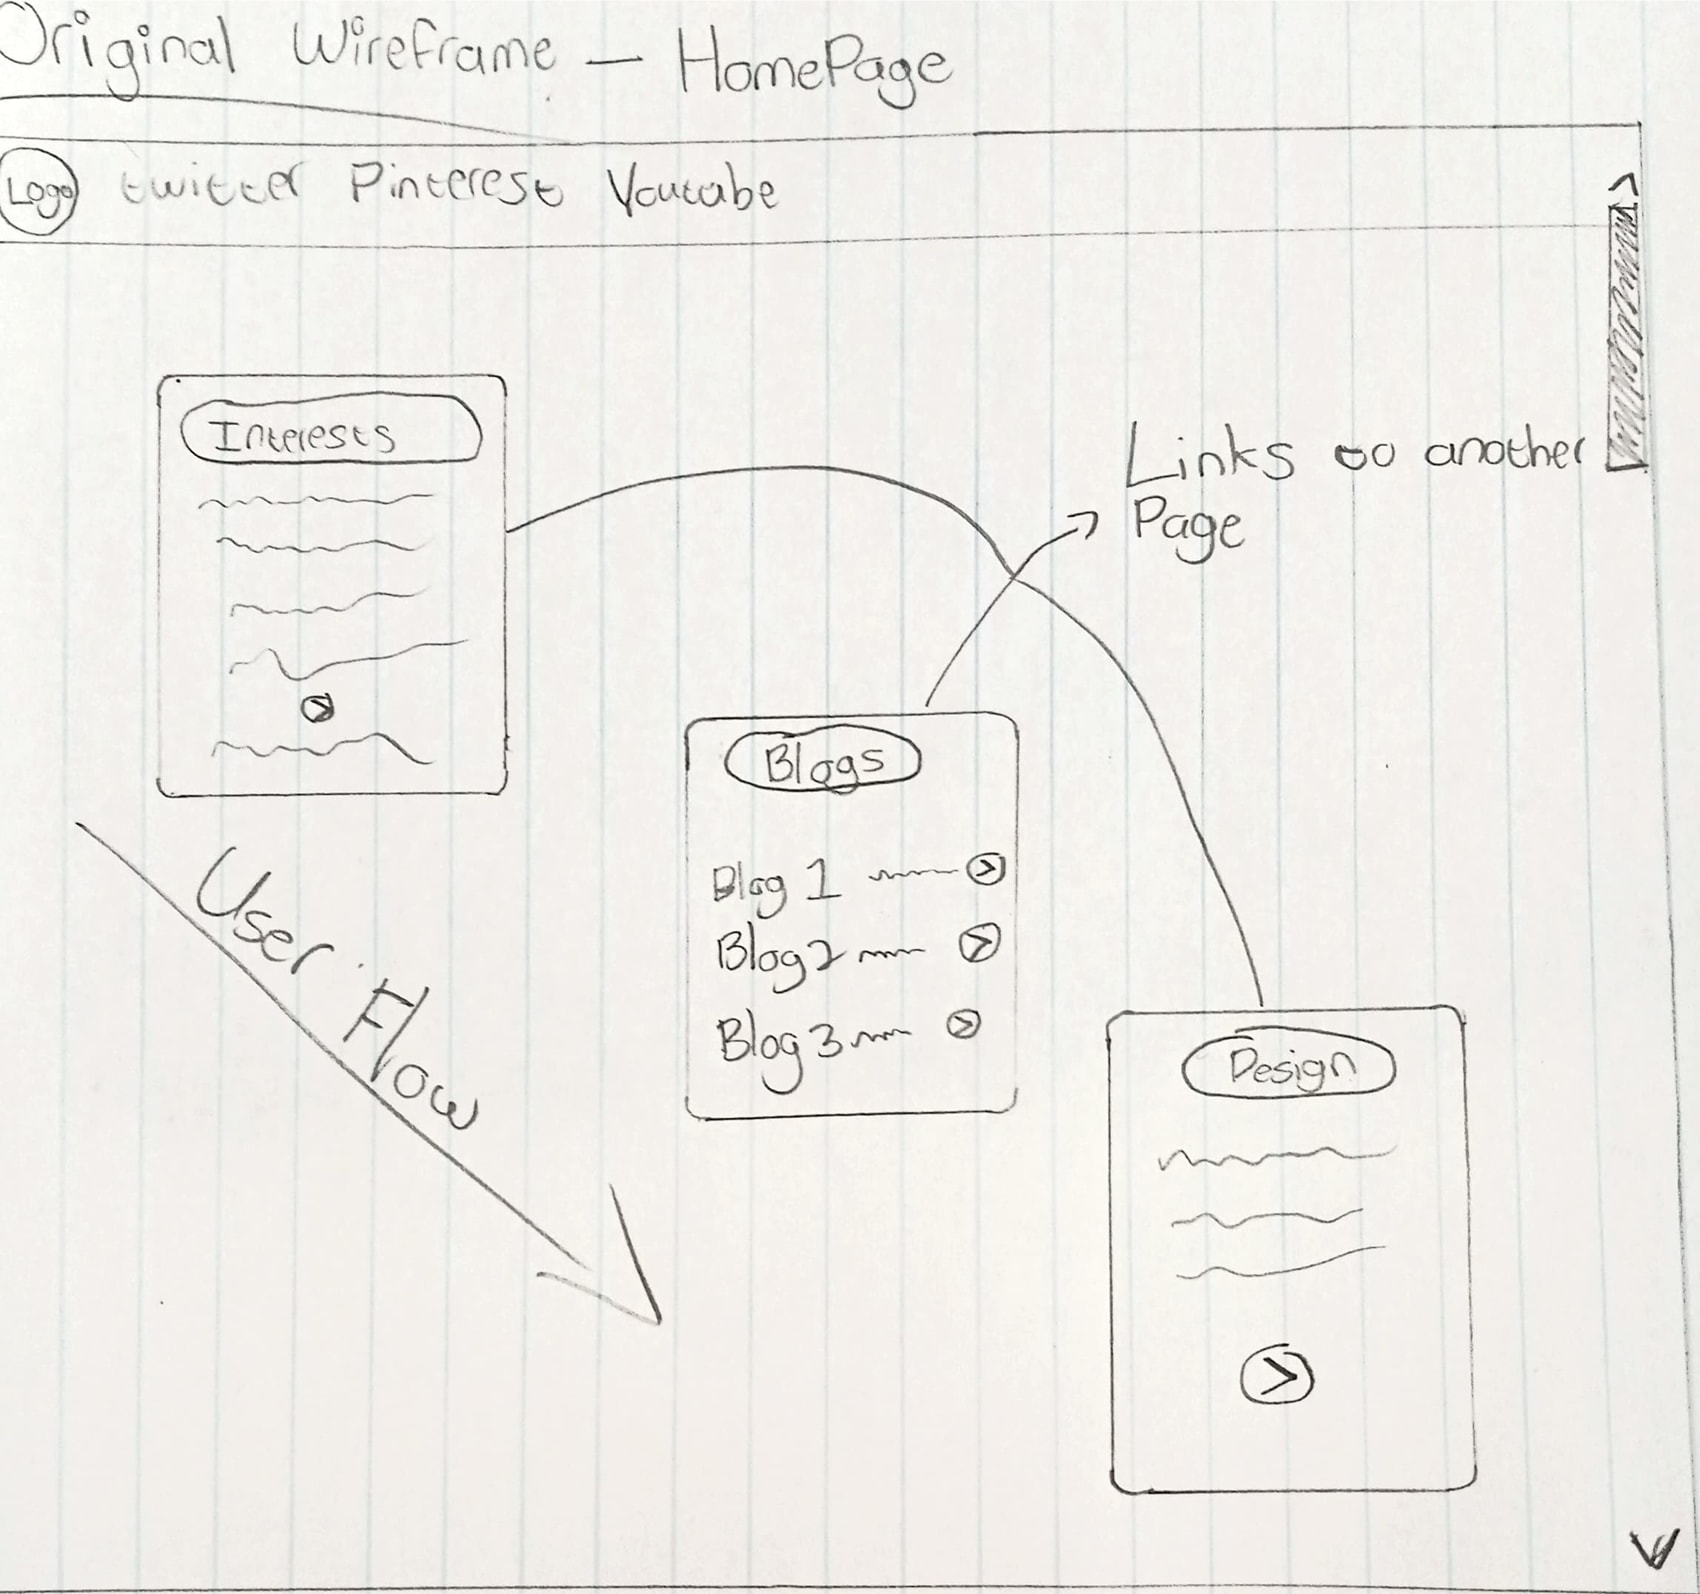 Original Wireframe — HomePage
Logo twitter Pinterest Youtube
Interests
Links to another
Page
Blogs
Blog 1
Blog 2
Blog 3
User Flow
Design